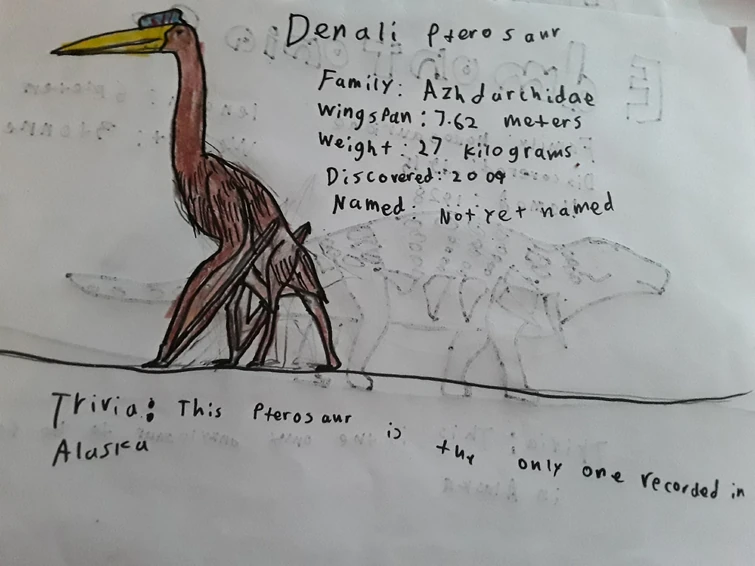 Denali Pterosaur
Family: Azhdarchidae
Wingspan: 7.62 meters
Weight: 27 kilograms
Discovered: 2009
Named: Not yet named
Trivia: This Pterosaur is the only one recorded in
Alaska